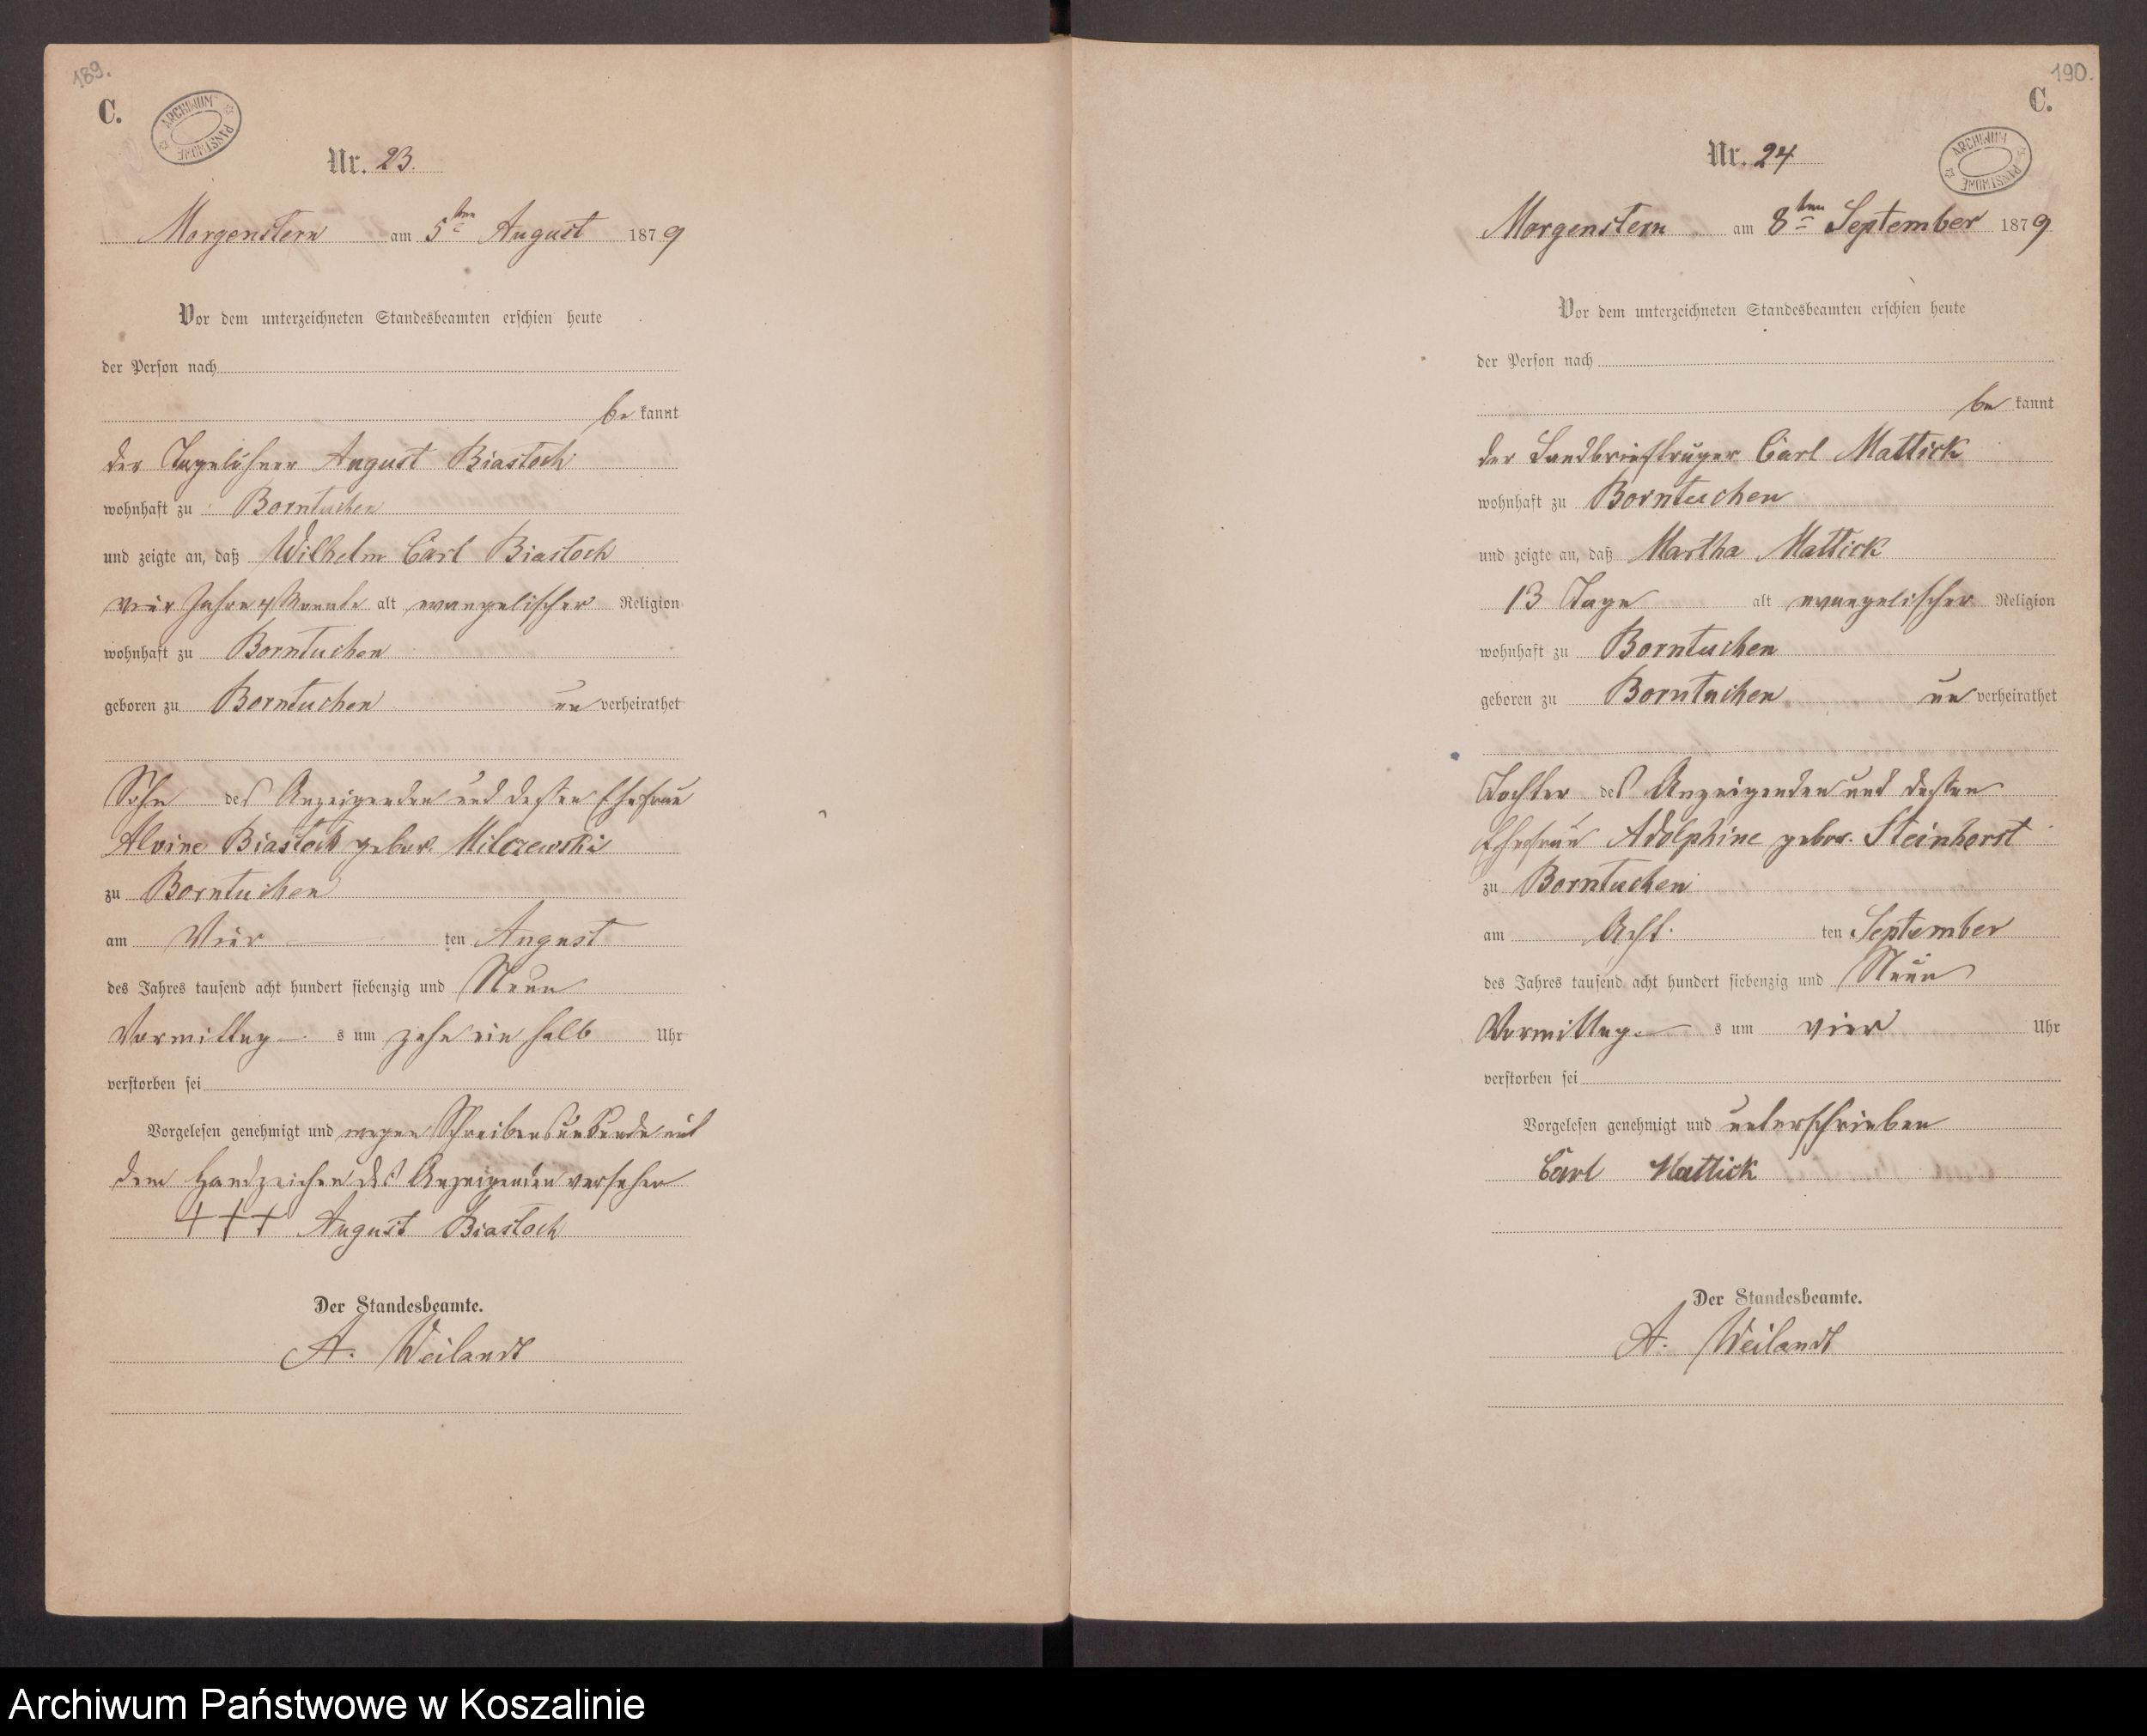 189.
C.
ARCHIWUM PAŃSTWOWE
Nr. 23.
Morgenstern am 5ten August 1879
Vor dem unterzeichneten Standesbeamten erschien heute
der Person nach
be kannt
der Tagelöhner August Biastoch
wohnhaft zu Borntuchen
und zeigte an, daß Wilhelm Carl Biastoch
vier Jahre 4 Monate alt evangelischer Religion
wohnhaft zu Borntuchen
geboren zu Borntuchen un verheirathet
Sohn des Anzeigenden und dessen Ehefrau
Alvine Biastoch gebor. Milczewski
zu Borntuchen
am Vier ten August
des Jahres tausend acht hundert siebenzig und Neun
Vormittag s um zehn ein halb Uhr
verstorben sei
Vorgelesen genehmigt und wegen Schreibensunkunde mit
dem Handzeichen des Anzeigenden versehen
+++ August Biastoch
Der Standesbeamte.
A. Weilandt
190.
C.
ARCHIWUM PAŃSTWOWE
Nr. 24
Morgenstern am 8ten September 1879
Vor dem unterzeichneten Standesbeamten erschien heute
der Person nach
be kannt
der Landbriefträger Carl Mattick
wohnhaft zu Borntuchen
und zeigte an, daß Martha Mattick
13 Tage alt evangelischer Religion
wohnhaft zu Borntuchen
geboren zu Borntuchen un verheirathet
Tochter des Anzeigenden und dessen
Ehefrau Adolphine gebor. Steinhorst
zu Borntuchen
am Acht ten September
des Jahres tausend acht hundert siebenzig und Neun
Vormittag s um vier Uhr
verstorben sei
Vorgelesen genehmigt und unterschrieben
Carl Mattick
Der Standesbeamte.
A. Weilandt
Archiwum Państwowe w Koszalinie